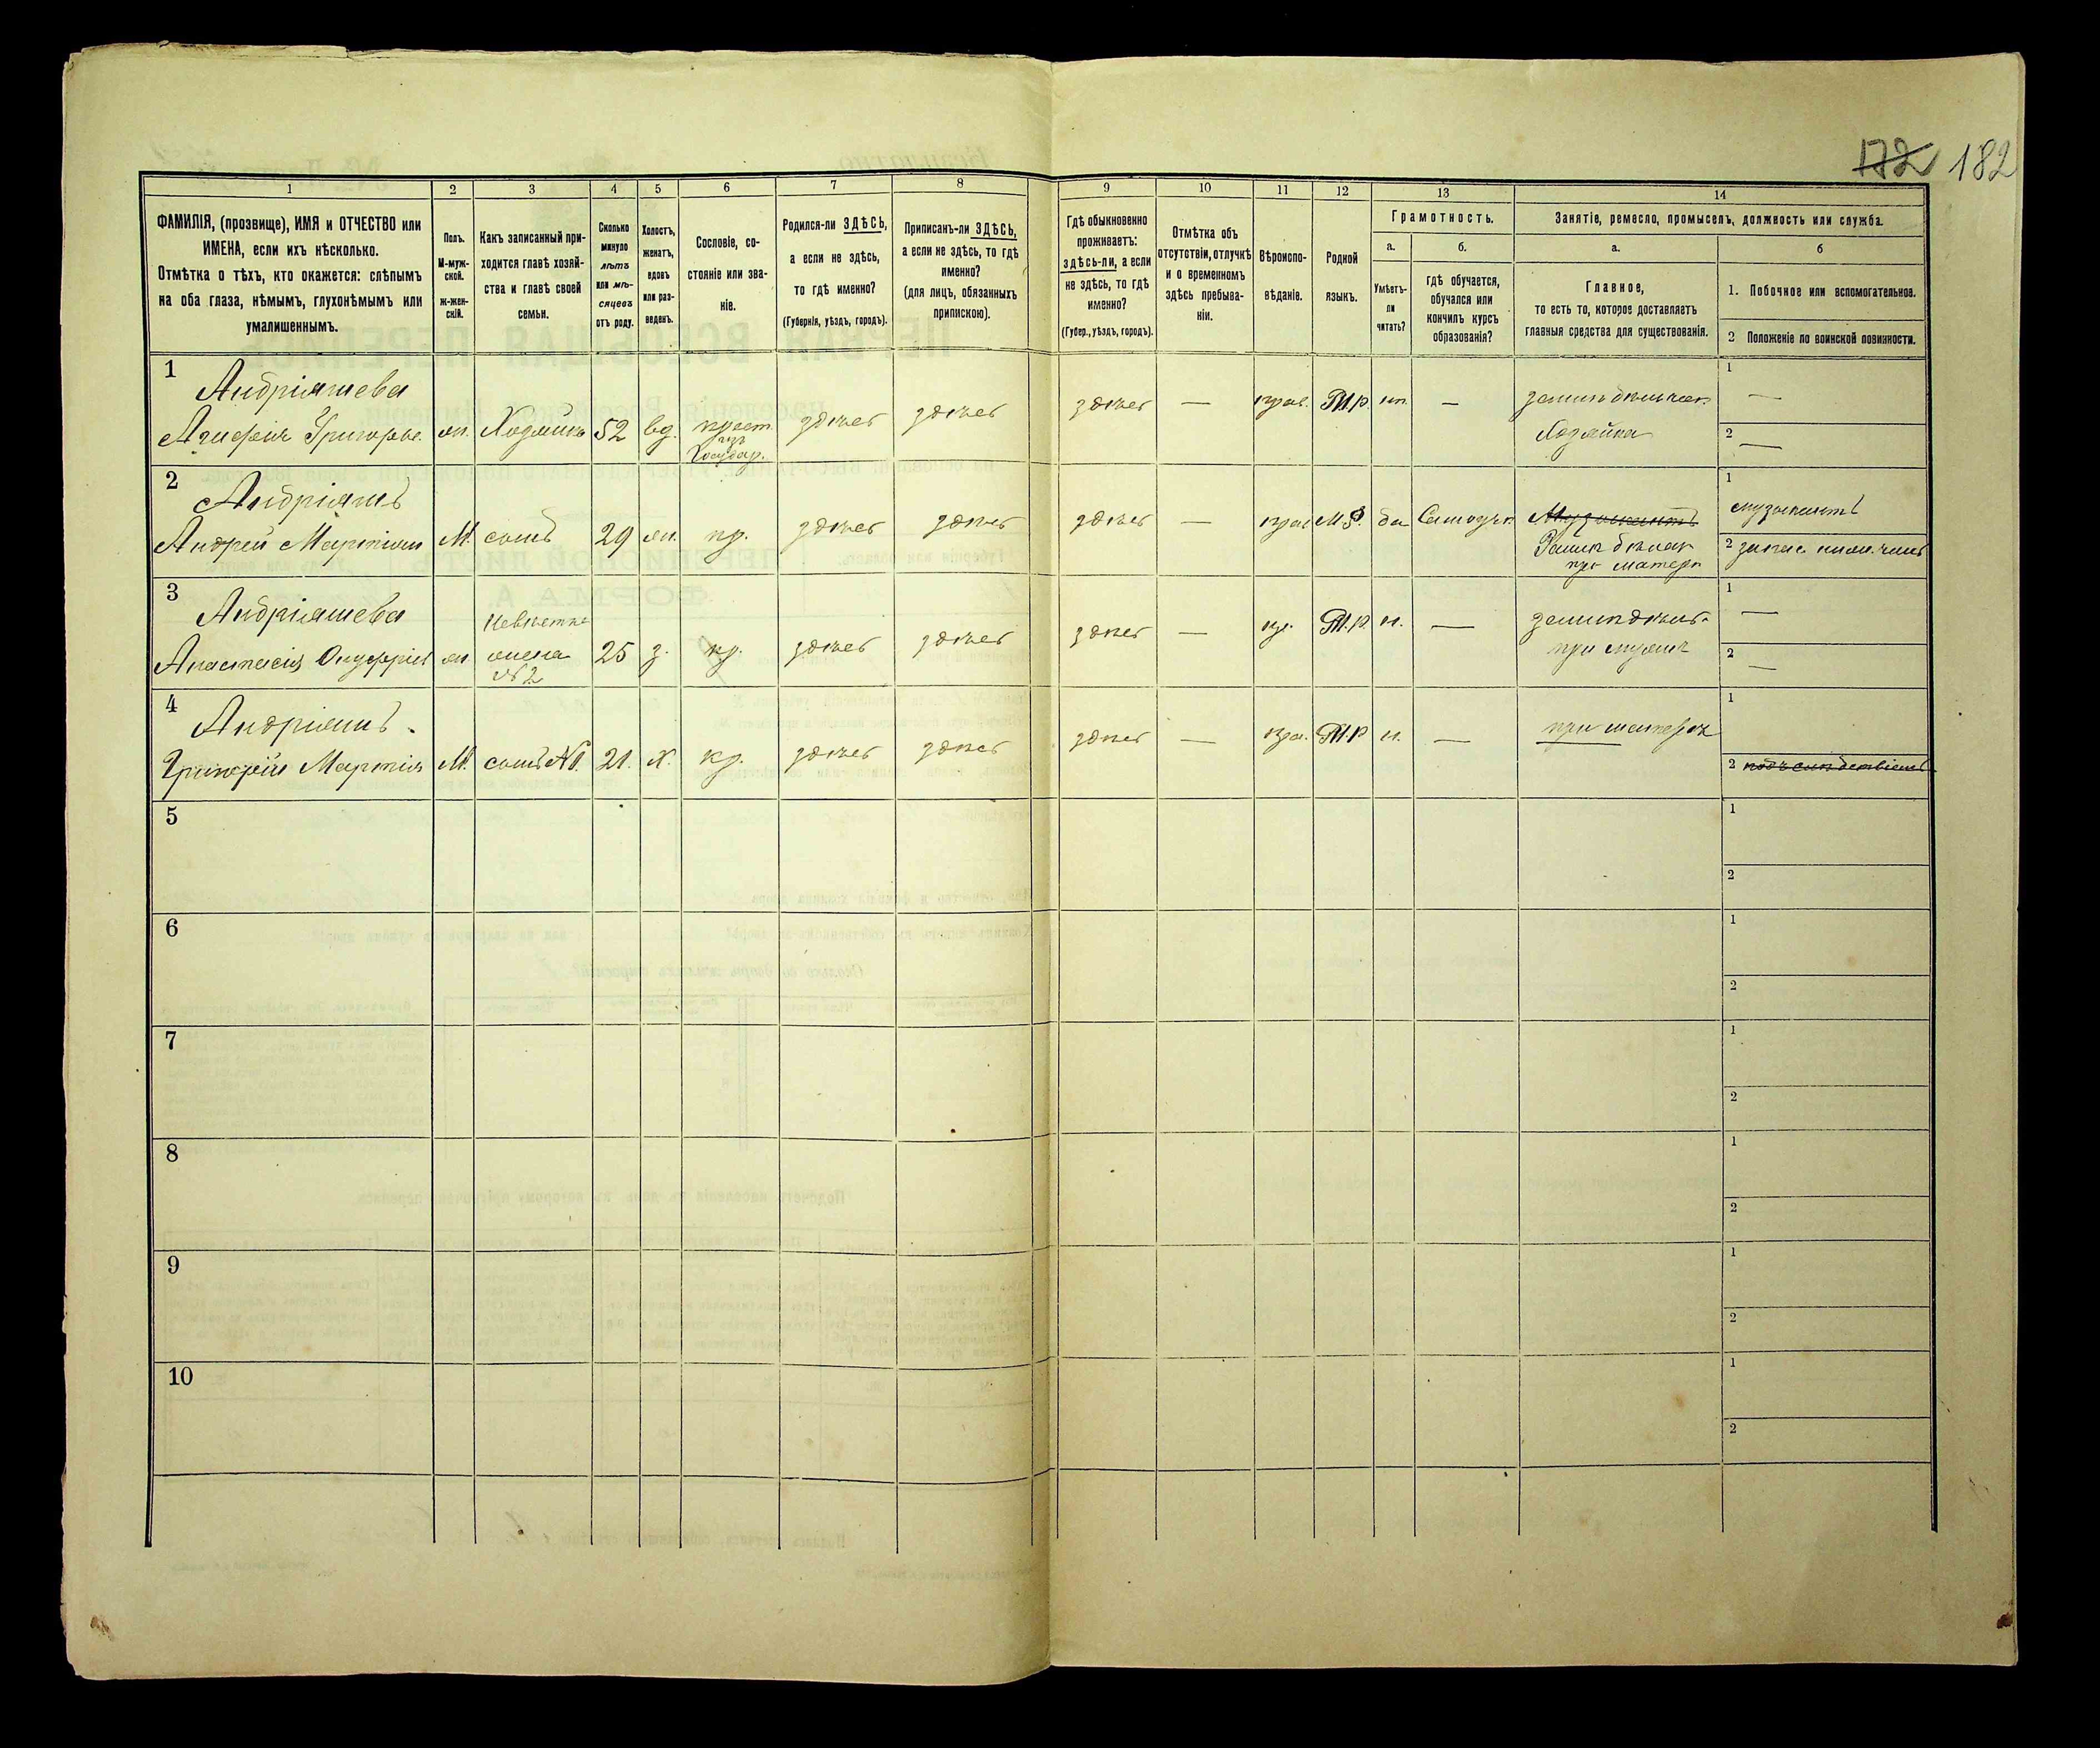 172 182
1 2 3 4 5 6 7 8 9 10 11 12 13 14
ФАМИЛІЯ, (прозвище), ИМЯ и ОТЧЕСТВО или
ИМЕНА, если ихъ нѣсколько.
Отмѣтка о тѣхъ, кто окажется: слѣпымъ
на оба глаза, нѣмымъ, глухонѣмымъ или
умалишеннымъ.
Полъ.
М-муж-
ской.
ж-жен-
скій.
Какъ записанный при-
ходится главѣ хозяй-
ства и главѣ своей
семьи.
Сколько
минуло
лѣтъ
или мѣ-
сяцевъ
отъ роду.
Холостъ,
женатъ,
вдовъ
или раз-
веденъ.
Сословіе, со-
стояніе или зва-
ніе.
Родился-ли ЗДѢСЬ,
а если не здѣсь,
то гдѣ именно?
(Губернія, уѣздъ, городъ).
Приписанъ-ли ЗДѢСЬ,
а если не здѣсь, то гдѣ
именно?
(для лицъ, обязанныхъ
припискою).
Гдѣ обыкновенно
проживаетъ:
здѣсь-ли, а если
не здѣсь, то гдѣ
именно?
(Губер., уѣздъ, городъ).
Отмѣтка объ
отсутствіи, отлучкѣ
и о временномъ
здѣсь пребыва-
ніи.
Вѣроиспо-
вѣданіе.
Родной
языкъ.
Грамотность.
а.
Умѣетъ-
ли
читать?
б.
гдѣ обучается,
обучался или
кончилъ курсъ
образованія?
Занятіе, ремесло, промыселъ, должность или служба.
а.
Главное,
то есть то, которое доставляетъ
главныя средства для существованія.
б
1. Побочное или вспомогательное.
2 Положеніе по воинской повинности.
1 Андріяшева
Агифія Григорье. жн. Хозяйка 52 вд. крест. здѣсь здѣсь здѣсь — прав. М.р. нѣ. — земледѣльч. 1 —
изъ
Государ. Хозяйка 2 —
2 Андріяшъ
Андрей Мартиновъ М. сынъ 29 жн. кр. здѣсь здѣсь здѣсь — прав М.Р. да Самоучк. Музыкантъ 1 музыкантъ
Землед. 2 запас. нижн. чинъ
при матери
3 Андріяшева
Анастасія Онуфріев жн Невѣстка
жена
№2 25 з. кр. здѣсь здѣсь здѣсь — пр. М.р. н. — земледѣл. 1 —
при мужѣ 2 —
4 Андріяшъ.
Григорій Мартинъ М. сынъ №1. 21. х. кр. здѣсь здѣсь здѣсь — пра. М.р н. — при матерѣ 1
2 подъ слѣдствіемъ
5 1
2
6 1
2
7 1
2
8 1
2
9 1
2
10 1
2